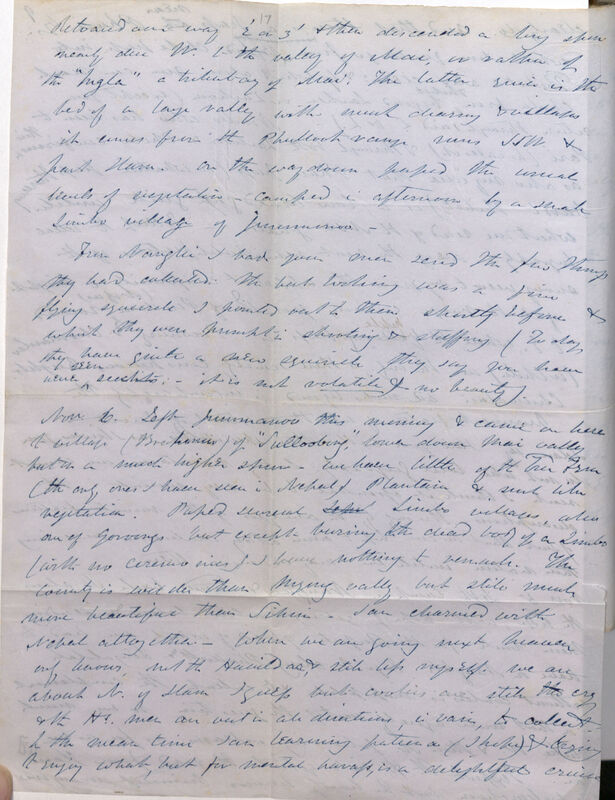 17
Retraced our way E or 3 & then descended a long spur
nearly due W. to the valley of Mai, or rather of
the "Ingla" a tributary of Mai. The latter river is the
bed of a large valley with much clearing & villages
it comes from the Phulloot range runs SW &
past Ilam. on the way down passed the usual
of vegetation – camped in afternoon by a small
Limbo village of Jummanoo –
From Nanglei I had your men send the few things
they had collected. The best looking was a fine
flying squirrel I pointed out to them shortly before &
which they were prompt in shooting & stuffing (Today
they have quite a new squirrel they say you have
never seen – it is not volatile & no beauty).
Nov 6. Left Jummanoo this morning & came on here
a village (Brahmin) of "Sulloobong", lower down Mai valley
but on a much higher spur – we have little of the Tree Fern
(the only ones I have seen in Nepal) Plantain & such like
vegetation. Passed several Limbo villages also
one of Goorongs but except burning the dead body of a Limbo
(with no ceremonies) I have nothing to remark. The
country is wilder than valley but still much
more beautiful than Sikim – I am charmed with
Nepal altogether – Where we are going next heaven
only knows, not the Havildar, & still less myself. we are
about N. of Ilam I guess but coolies are still the cry
& the Hs. men are out in all directions, in vain, to collect
In the mean time I am learning patience (I hope) & trying
to enjoy what, but for mental harass, is a delightful cruise